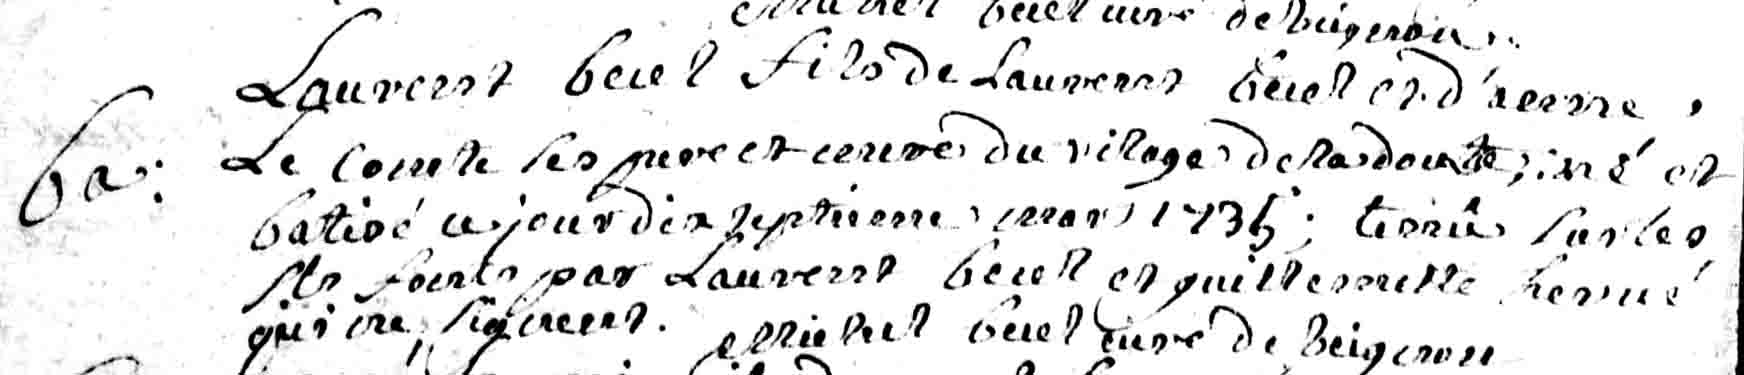 Michel beuel curé de beignon
Laurent beuel fils de Laurent beuel et d'anne
ba: Le Comte ses pere et mere du vilage de la doutte, né et
batisé ce jour dix septieme mars 1735; tenu sur les
sts fonts par Laurent beuel et guillemette hervé
qui ne signent. Michel beuel curé de beignon